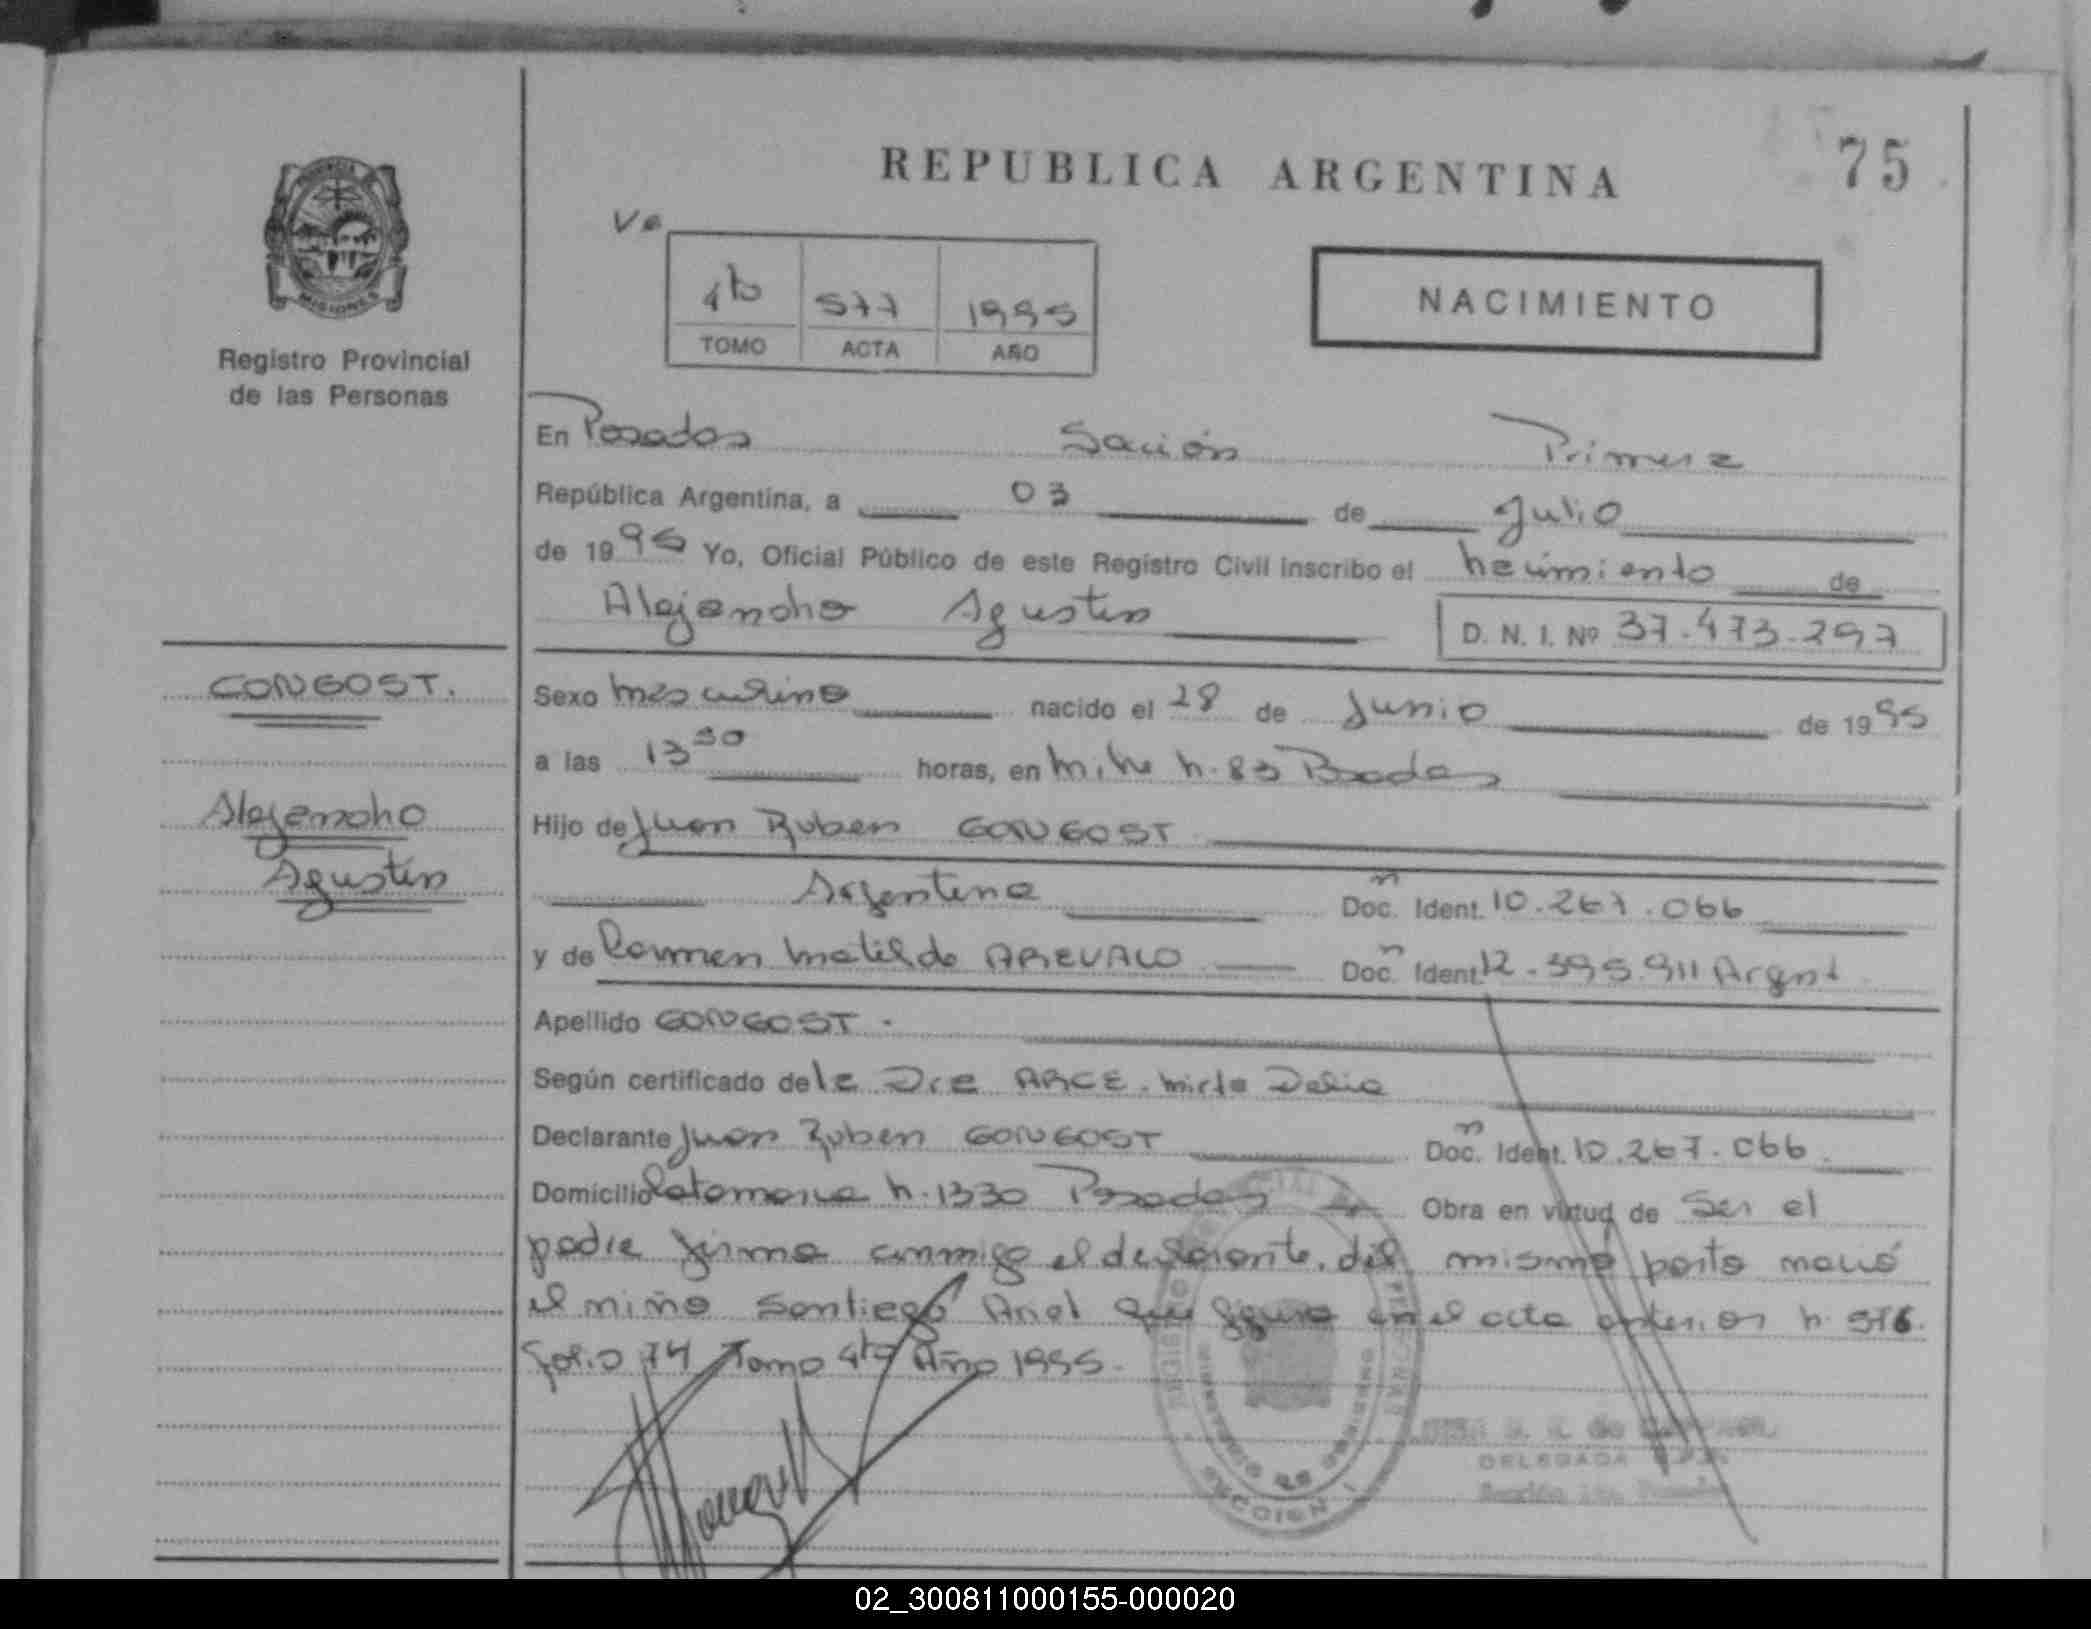 REPUBLICA ARGENTINA
75
MISIONES
Registro Provincial
de las Personas
4to 577 1995
TOMO ACTA AÑO
NACIMIENTO
En Posadas Sección Primera
República Argentina, a 03 de Julio
de 1995 Yo, Oficial Público de este Registro Civil inscribo el nacimiento de
Alejandro Agustin
D. N. I. Nº 37.473.297
CONGOST.
Alejandro
Agustin
Sexo masculino nacido el 28 de Junio de 1995
a las 13 30 horas, en Mitre n. 83 Posadas
Hijo de Juan Ruben CONGOST
Argentina Doc. Ident. 10.267.066
y de Carmen Matilde AREVALO Doc. Ident. 12.395.911 Argnt
Apellido CONGOST.
Según certificado de la Dra ARCE. Mirta Delia
Declarante Juan Ruben CONGOST Doc. Ident. 10.267.066
Domicilio Catamarca n. 1330 Posadas Obra en virtud de Ser el
padre firma conmigo el declarante. del mismo parto nació
el niño Santiago Ariel que figura en el acta anterior n. 576.
folio 74 Tomo 4to Año 1995.
SECCION 1
DELEGADA
02_300811000155-000020